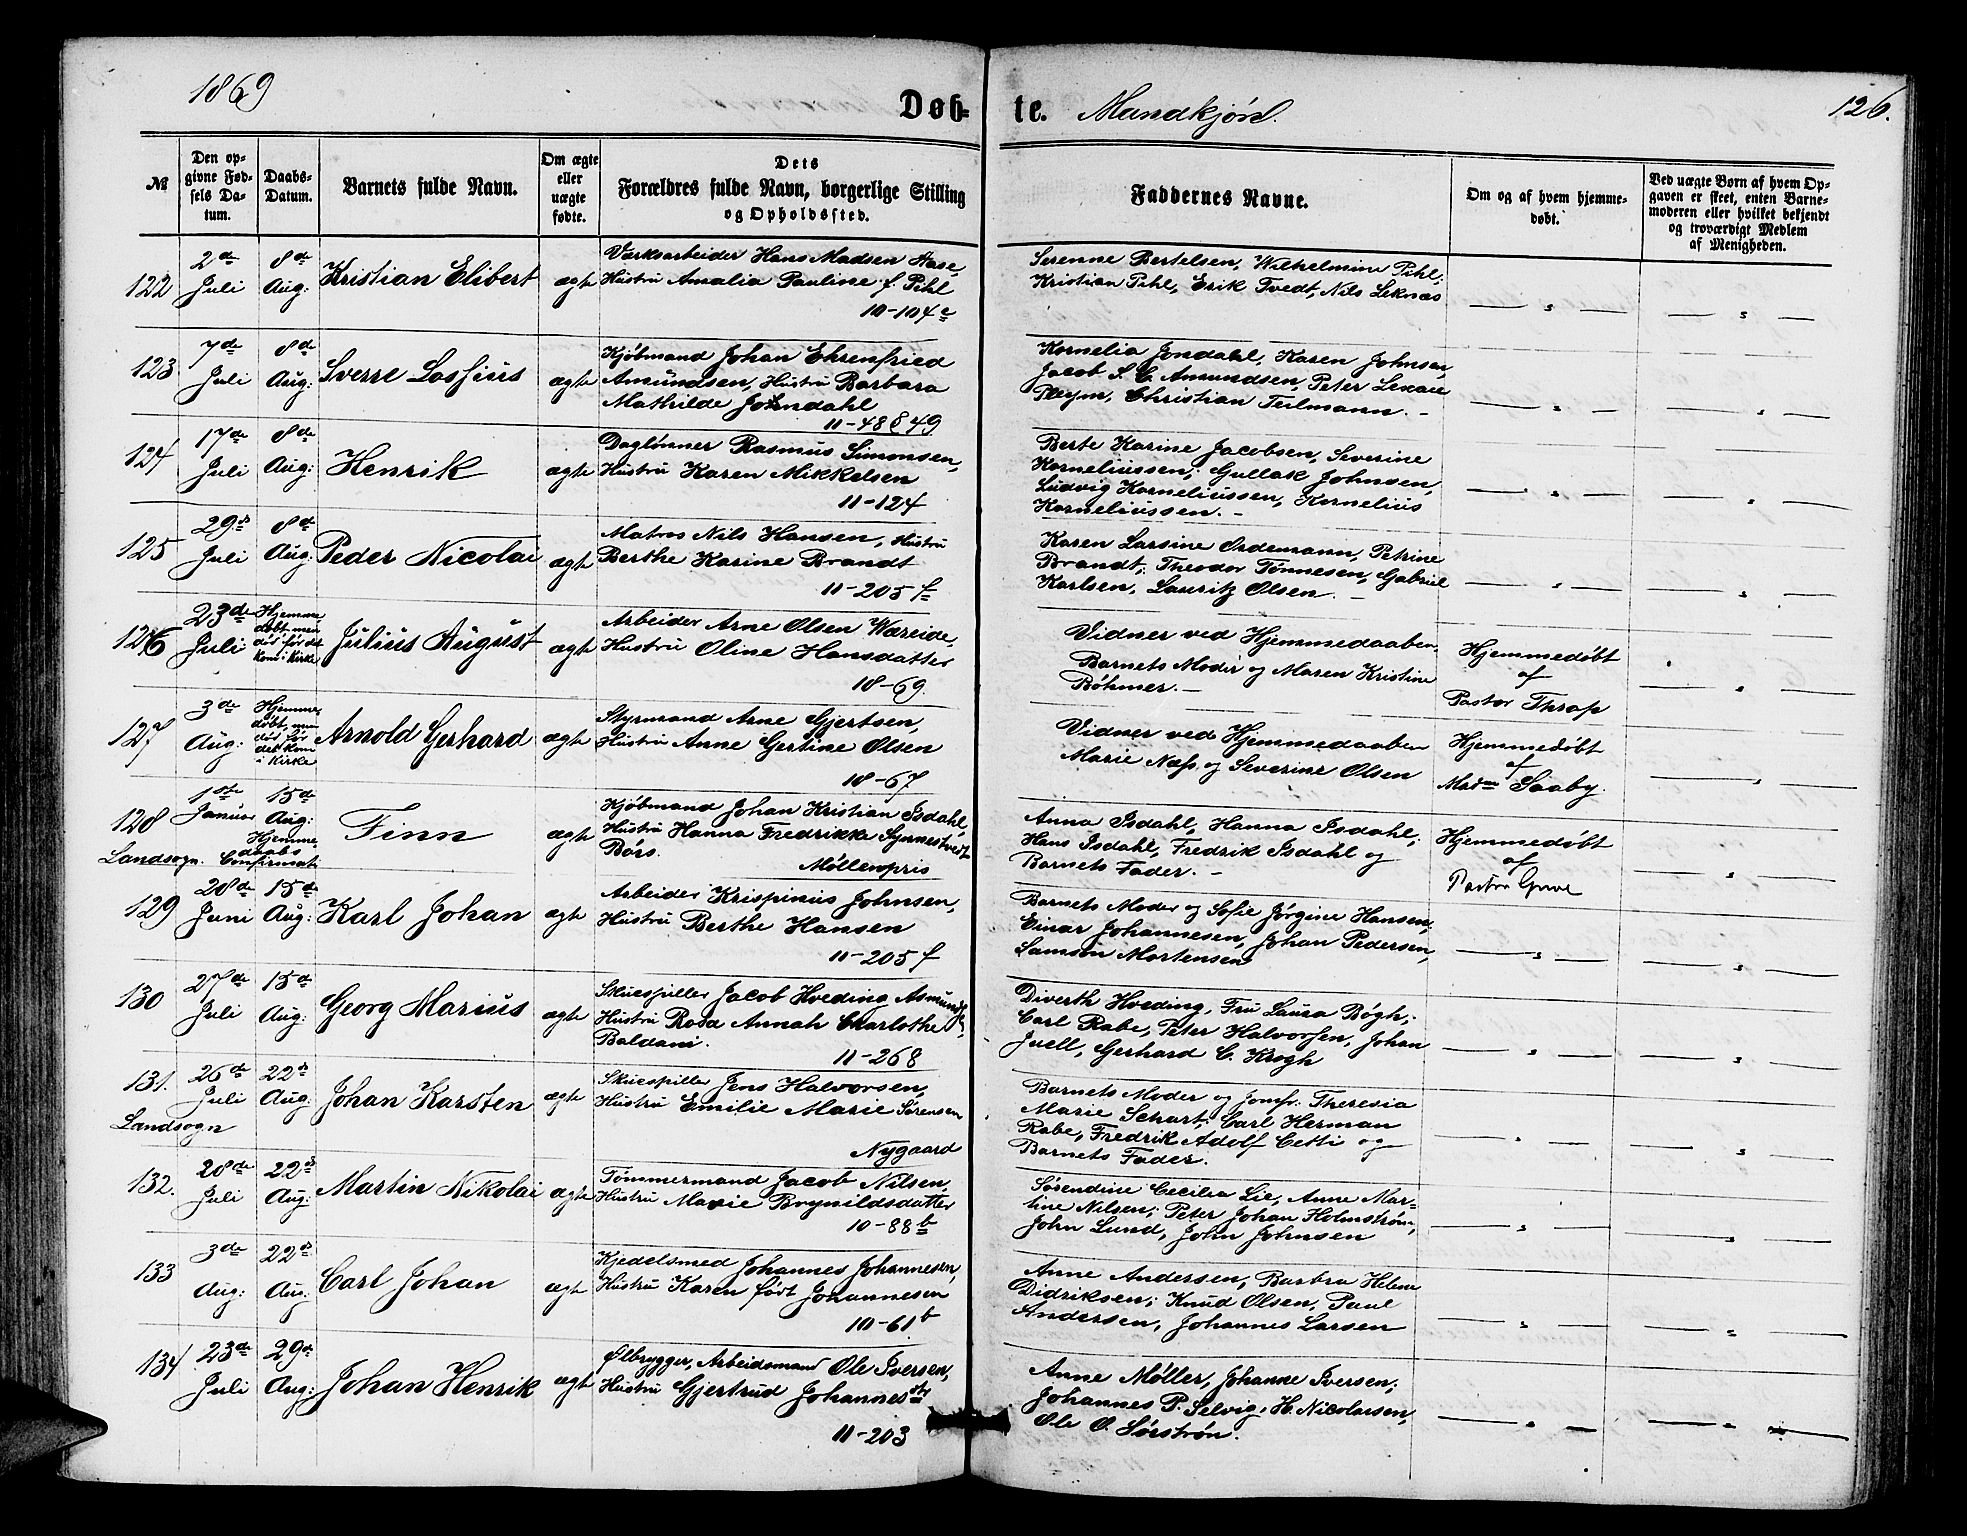 1869
Døb-
te. Mandkjøn.
126.
№
Den op-
givne Fød-
sels Da-
tum.
Daabs-
Datum.
Barnets fulde Navn.
Om ægte
eller
uægte
fødte.
Dets
Forældres fulde Navn, borgerlige Stilling
og Opholdssted.
Faddernes Navne.
Om og af hvem hjemme-
døbt.
Ved uægte Børn af hvem Op-
gaven er skeet, enten Barne-
moderen eller hvilket bekjendt
og troværdigt Medlem
af Menigheden.
122
2de
Juli
8de
Aug:
Kristian Elibert
ægte
Værksarbeider Hans Madsen Aase,
Hustru Amalia Pauline f. Pihl
10-104c
Serenne Bertelsen, Wilhelmine Pihl;
Kristian Pihl, Erik Tvedt, Nils Leknæs
123
7de
Juli
8de
Aug:
Sverre Lossius
ægte
Kjøbmand Johan Ehrenfried
Amundsen, Hustru Barbara
Mathilde Johndahl
11-48 & 49
Kornelia Jondahl, Karen Johnsen,
Jacob S. C. Amundsen, Peter Lexau
Pleym, Christian Teilmann. -
124
17de
Juli
8de
Aug:
Henrik
ægte
Daglønner Rasmus Simonsen,
Hustru Karen Mikkelsen
11-124
Berte Karine Jacobsen, Severine
Korneliussen; Gullak Johnsen,
Ludvig Korneliussen, Kornelius
Korneliussen. -
125
29de
Juli
8de
Aug:
Peder Nicolai
ægte
Matros Nils Hansen, Hustru
Berthe Karine Brandt
11-205 f
Karen Larsine Ordemann, Petrine
Brandt; Theodor Tønnesen, Gabriel
Karlsen, Lauritz Olsen. -
126
23de
Juli
Hjemme
døbt, men
død før det
kom i Kirke
Julius August
ægte
Arbeider Arne Olsen Wæreide,
Hustru Oline Hansdatter
18-69.
Vidner ved Hjemmedaaben
Barnets Moder og Maren Kristine
Bøhmer. -
Hjemmedøbt
af
Pastor Thrap
127
3de
Aug:
Hjemme-
døbt, men
død før
det kom
i Kirke
Arnold Gerhard
ægte
Styrmand Arne Gjertsen,
Hustru Anne Gertine Olsen
18-67
Vidner ved Hjemmedaaben
Marie Næss og Severine Olsen
Hjemmedøbt
af
Madm Saaby.
128
Landsogn.
1ste
Januar
15de
Aug:
Hjemme-
daabs
Confirmat:
Finn
ægte
Kjøbmand Johan Kristian Isdahl,
Hustru Hanna Fredrikke Synnestvedt
Børs.
Møllenpris
Anna Isdahl, Hanna Isdahl;
Hans Isdahl, Fredrik Isdahl og
Barnets Fader. -
Hjemmedøbt
af
Pastor Grove
129
28de
Juni
15de
Aug:
Karl Johan
ægte
Arbeider Krispinus Johnsen,
Hustru Berthe Hansen
11-205 f
Barnets Moder og Sofie Jørgine Hansen;
Einar Johannesen, Johan Pedersen,
Samson Mortensen
130
27de
Juli
15de
Aug:
Georg Marius
ægte
Skuespiller Jacob Hveding Asmunds,
Hustru Rosa Annah Charlothe
Baldani.
11-268
Diverth Hveding, Fru Laura Bøgh;
Carl Rabe, Peter Halvorsen, Johan
Juell, Gerhard C. Krogh
131.
Landsogn
26de
Juli
22de
Aug:
Johan Karsten
ægte
Skuespiller Jens Halvorsen,
Hustru Emilie Marie Sørensen
Nygaard
Barnets Moder og Jomfr: Theresia
Marie Schart; Carl Herman
Rabe, Fredrik Adolf Cetti og
Barnets Fader.
132.
28de
Juli
22de
Aug:
Martin Nikolai
ægte
Tømmermand Jacob Nilsen,
Hustru Marie Brynildsdatter
10-88b
Sørendine Cecilia Lie, Anne Mar-
tine Nilsen; Peter Johan Holmstrøm,
John Lund, John Johnsen
133
3de
Aug:
22de
Aug:
Carl Johan
ægte
Kjedelsmed Johannes Johannesen,
Hustru Karen født Johannesen
10-61b
Anne Andersen, Barbra Helene
Didriksen; Knud Olsen, Paul
Andersen, Johannes Larsen
134
23de
Juli
29de
Aug:
Johan Henrik
ægte
Ølbrygger, Arbeidsmand Ole Iversen,
Hustru Gjertrud Johannesdtr
11-203
Anne Møller, Johanne Iversen;
Johannes P. Selvig, H. Nicolaisen,
Ole O. Sørstrøn.